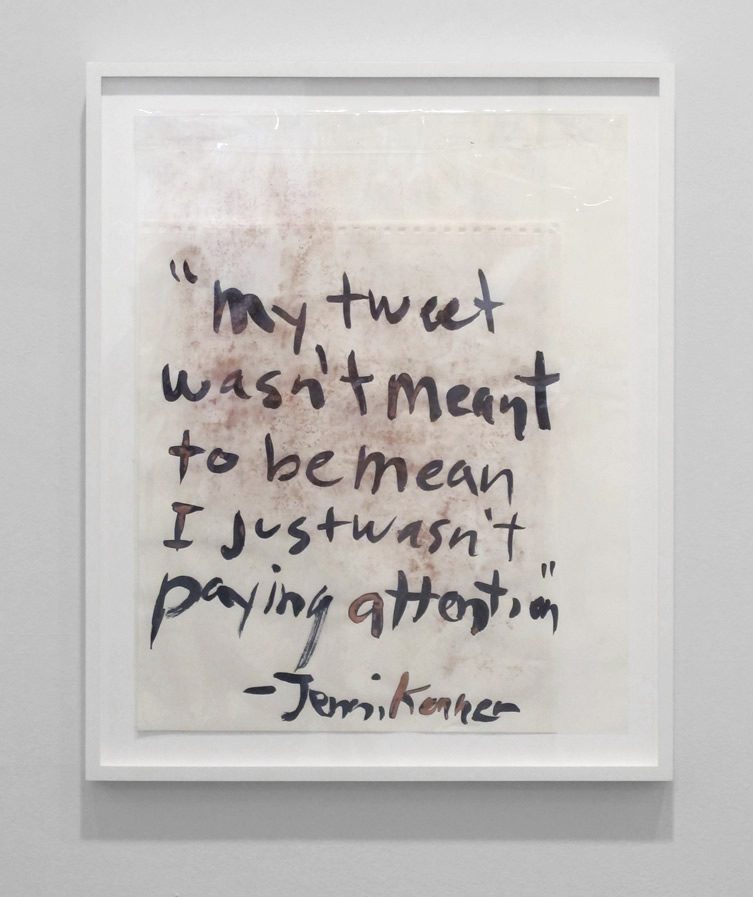 "my tweet
wasn't meant
to be mean
I just wasn't
paying attention"
-Jenni Konner